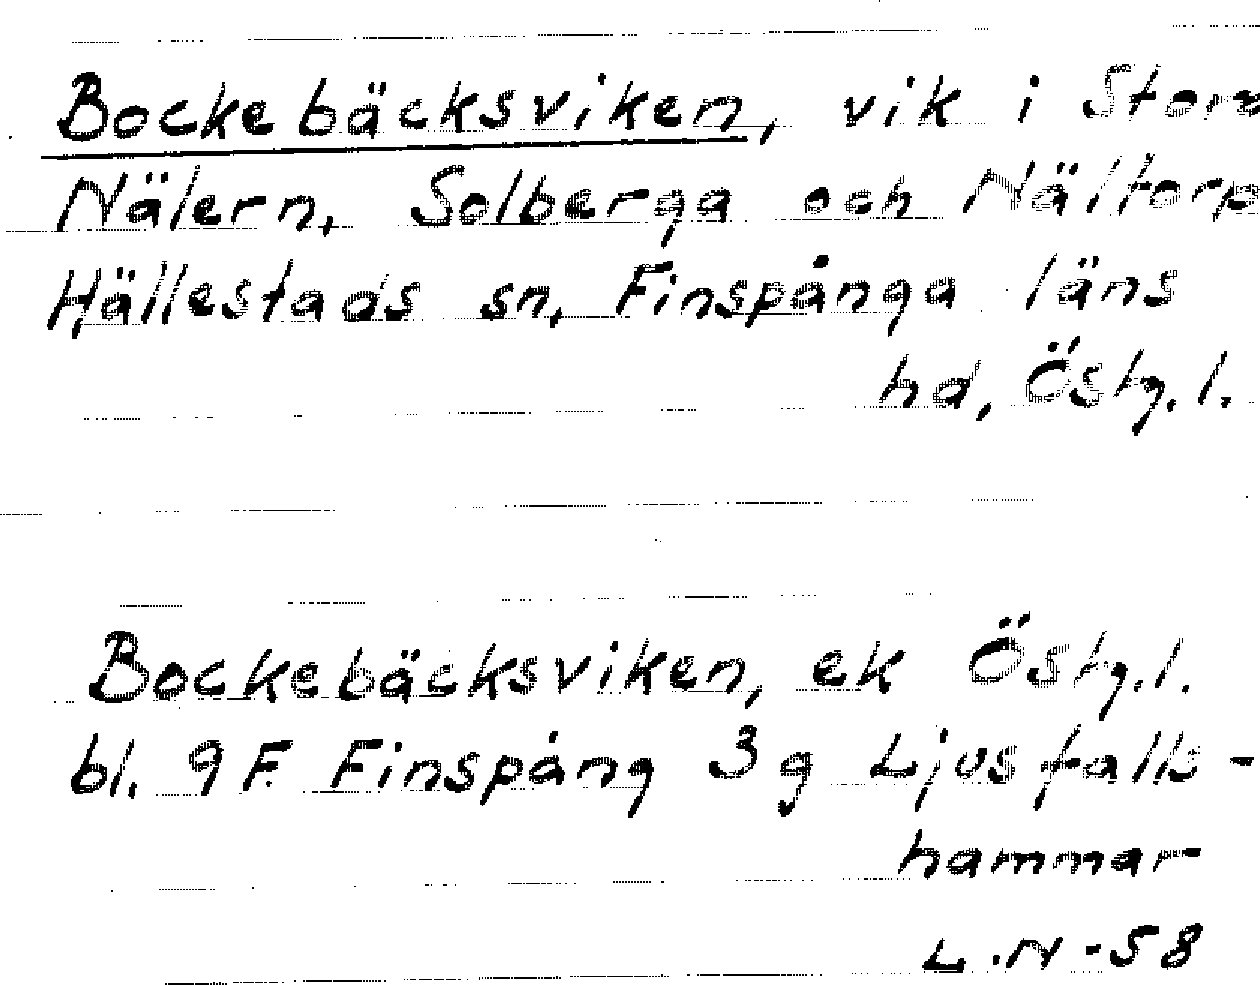 Bockebäcksviken, vik i Stora
Nälern, Solberga och Nältorp
Hällestads sn, Finspånga läns
hd, Östg.l.
Bockebäcksviken, ek Östg.l.
bl. 9F Finspång 3g Ljusfalls-
hammar
L.N-58